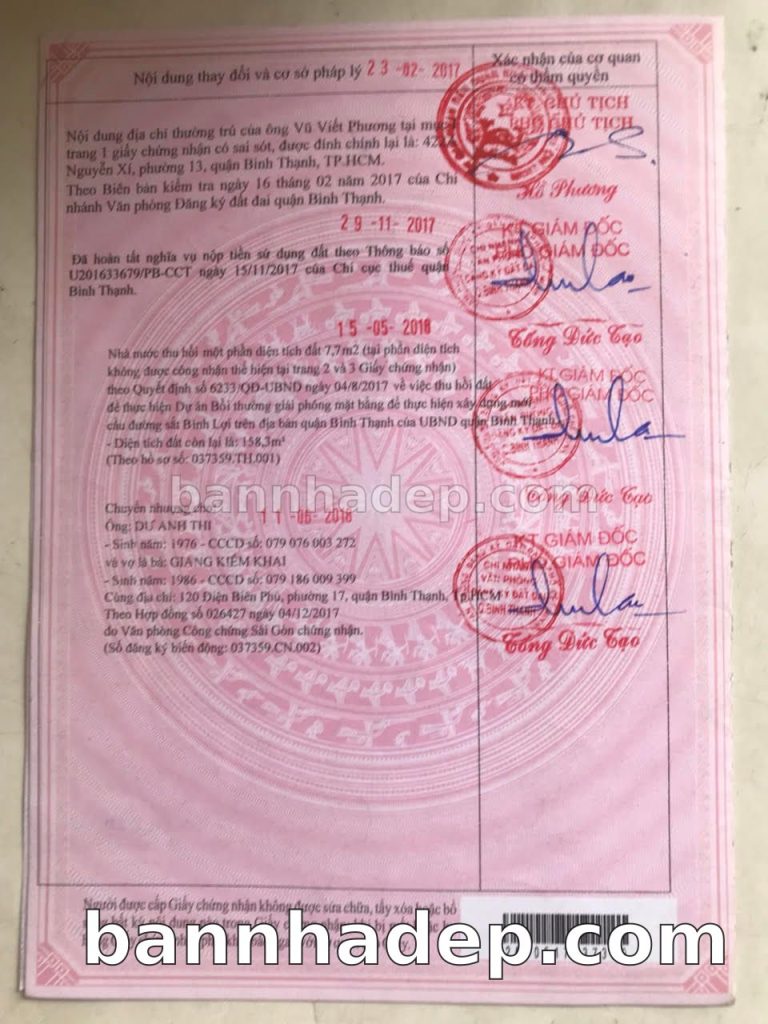 Nội dung thay đổi và cơ sở pháp lý
23-02-2017
Xác nhận của cơ quan
có thẩm quyền
KT. CHỦ TỊCH
PHÓ CHỦ TỊCH
Nội dung địa chỉ thường trú của ông Vũ Viết Phương tại
trang 1 giấy chứng nhận có sai sót, được đính chính lại là:
Nguyễn Xí, phường 13, quận Bình Thạnh, TP.HCM.
Theo Biên bản kiểm tra ngày 16 tháng 02 năm 2017 của Chi
nhánh Văn phòng Đăng ký đất đai quận Bình Thạnh.
Hồ Phương
29-11-2017
KT.GIÁM ĐỐC
GIÁM ĐỐC
Đã hoàn tất nghĩa vụ nộp tiền sử dụng đất theo Thông báo số
U201633679/PB-CCT ngày 15/11/2017 của Chi cục thuế quận
Bình Thạnh.
Tống Đức Tạo
15-05-2018
Nhà nước thu hồi một phần diện tích đất 7,7m2 (tại phần diện tích
không được công nhận thể hiện tại trang 2 và 3 Giấy chứng nhận)
theo Quyết định số 6233/QĐ-UBND ngày 04/8/2017 về việc thu hồi đất
để thực hiện Dự án Bồi thường giải phóng mặt bằng để thực hiện xây dựng mới
cầu đường sắt Bình Lợi trên địa bàn quận Bình Thạnh của UBND quận Bình Thạnh.
- Diện tích đất còn lại là: 158,3m²
(Theo hồ sơ số: 037359.TH.001)
KT.GIÁM ĐỐC
GIÁM ĐỐC
Tống Đức Tạo
bannhadep.com
Chuyển nhượng cho
11-06-2018
Ông: DƯ ANH THI
- Sinh năm: 1976 - CCCD số: 079 076 003 272
và vợ là bà: GIANG KIẾM KHAI
- Sinh năm: 1986 - CCCD số: 079 186 009 399
Cùng địa chỉ: 120 Điện Biên Phủ, phường 17, quận Bình Thạnh, Tp.HCM
Theo Hợp đồng số 026427 ngày 04/12/2017
do Văn phòng Công chứng Sài Gòn chứng nhận.
(Số đăng ký biến động: 037359.CN.002)
KT.GIÁM ĐỐC
GIÁM ĐỐC
CHI NHÁNH
VĂN PHÒNG
ĐĂNG KÝ ĐẤT ĐAI
Q.BÌNH THẠNH
Tống Đức Tạo
Người được cấp Giấy chứng nhận không được sửa chữa, tẩy xóa hoặc bổ
bannhadep.com